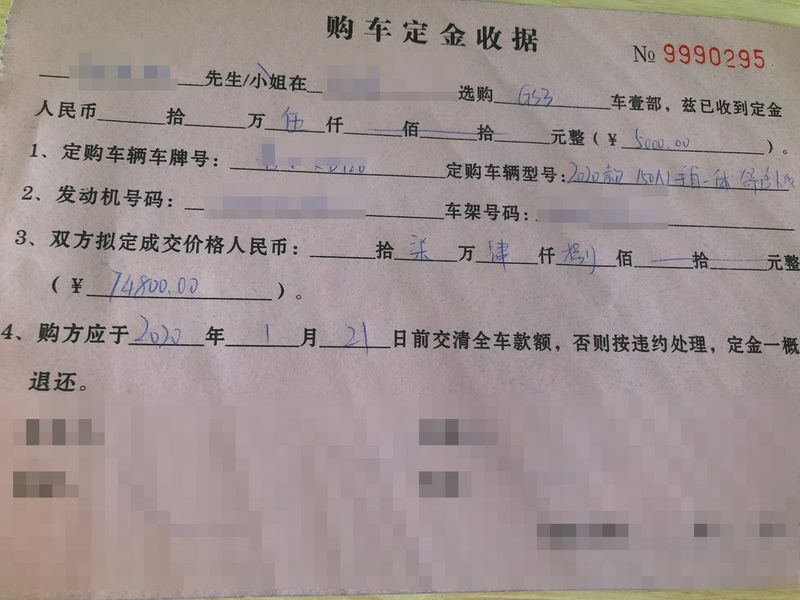 购车定金收据
№ 9990295
先生/小姐在 选购 GS3 车壹部，兹已收到定金
人民币 拾 万 伍 仟 佰 拾 元整（￥ 5000.00 ）。
1、定购车辆车牌号： 定购车辆型号：2020款 150N 手自一体
2、发动机号码： 车架号码：
3、双方拟定成交价格人民币： 拾 柒 万 肆 仟 捌 佰 拾 元整
（￥ 74800.00 ）。
4、购方应于 2020 年 1 月 21 日前交清全车款额，否则按违约处理，定金一概
退还。